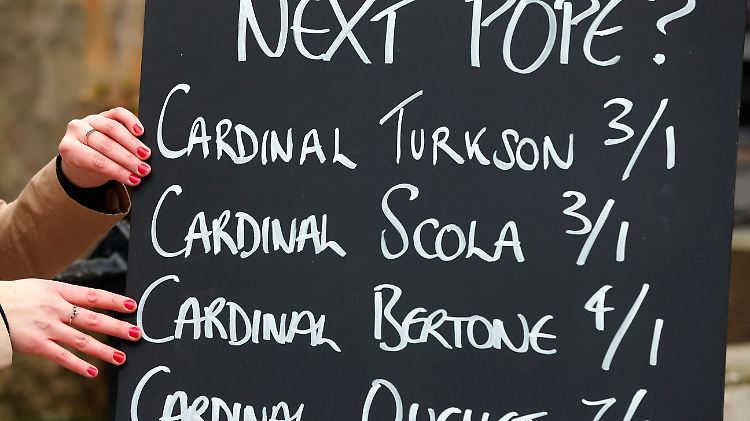 NEXT POPE?
CARDINAL TURKSON 3/1
CARDINAL SCOLA 3/1
CARDINAL BERTONE 4/1
CARDINAL OUELLET